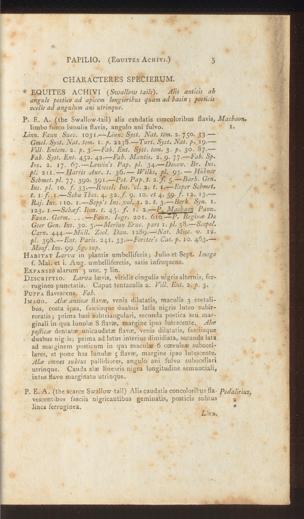 PAPILIO. (Equites Achivi.) 3
CHARACTERES SPECIERUM.
* EQUITES ACHIVI (Swallow tails). Alis anticis ab
angulo postico ad apicem longioribus quam ad basin; posticis
ocello ad angulum ani utrinque.
P. E. A. (the Swallow-tail) alis caudatis concoloribus flavis, Machaon.
limbo fusco lunulis flavis, angulo ani fulvo. 1.
Linn. Faun. Suec. 1031.—Linn. Syst. Nat. tom. 2. 750. 33.—
Gmel. Syst. Nat. tom. 1. p. 2238.—Turt. Syst. Nat. p. 19.—
Vill. Entom. 2. p. 3.—Fab. Ent. Syst. tom. 3 p. 30. 87.—
Fab. Syst. Ent. 452. 42.—Fab. Mantis. 2. 9. 77.—Fab. Sp.
Ins. 2. 17. 67.—Lewin's Pap. pl. 34.—Donov. Br. Ins.
pl. 211.—Harris Aur. t. 36.—Wilks, pl. 93.—Hübner
Schmet. pl. 77. 390. 391.—Pet. Pap. t. 2. f. 5.—Barb. Gen.
Ins. pl. 10. f. 33.—Roesel. Ins. cl. 2. t. 1.—Esper Schmet.
t. 1. f. 1.—Seba Thes. 4. 32. f. 9. 10. et t. 39. f. 12. 13.—
Raj. Ins. 110. 1.—Sepp's Ins. vol. 2. 2. t. 2.—Berk. Syn. 1.
123. 1.—Schæf. Icon. t. 45. f. 1. 2.—P. Machaon Panz.
Faun. Germ. —Faun. Ingr. 201. 610.—P. Reginæ De
Geer Gen. Ins. 30. 5.—Merian Erue. pars 1. pl. 38.—Scopol.
Carn. 444.—Müll. Zool. Dan. 1289.—Nat. Misc. v. 12.
pl. 398.—Ent. Paris. 241. 33.—Forster's Cat. p. 10. 463.—
Mouf. Ins. 99 fig. sup.
Habitat Larva in plantis umbelliferis, Julio et Sept. Imago
f. Mai. et l. Aug. umbelliferetis, satis infrequens.
Expansio alarum 3 unc. 7 lin.
Descriptio. Larva lævis, viridis cingulis nigris alternis, fer-
rugineo punctatis. Caput tentaculis 2. Vill. Ent. 2. p. 3.
Puppa flavescens. Fab.
Imago. Alæ anticæ flavæ, venis dilatatis, maculis 3 costali-
bus, costa ipsa, fasciisque duabus latis nigris intus subir-
roratis; prima basi subtriangulari, secunda postica seu mar-
ginali in qua lunulæ 8 flavæ, margine ipso lutescente. Alæ
posticæ dentatæ unicaudatæ flavæ, venis dilatatis, fasciisque
duabus nigris; prima ad latus interius dimidiata, secunda lata
ad marginem posticum in qua maculæ 6 cæruleæ subocel-
lares, et pone has lunulæ 5 flavæ, margine ipso lutescente.
Alæ omnes subtus pallidiores, angulo ani fulvo subocellari
utrinque. Cauda alæ linearis nigra longitudine semunciali,
intus flavo marginata utrinque.
P. E. A. (the scarce Swallow-tail) Alis caudatis concoloribus fla- Podalirius.
vescentibus fasciis nigricantibus geminatis, posticis subtus 2.
linea ferruginea. *
Linn.